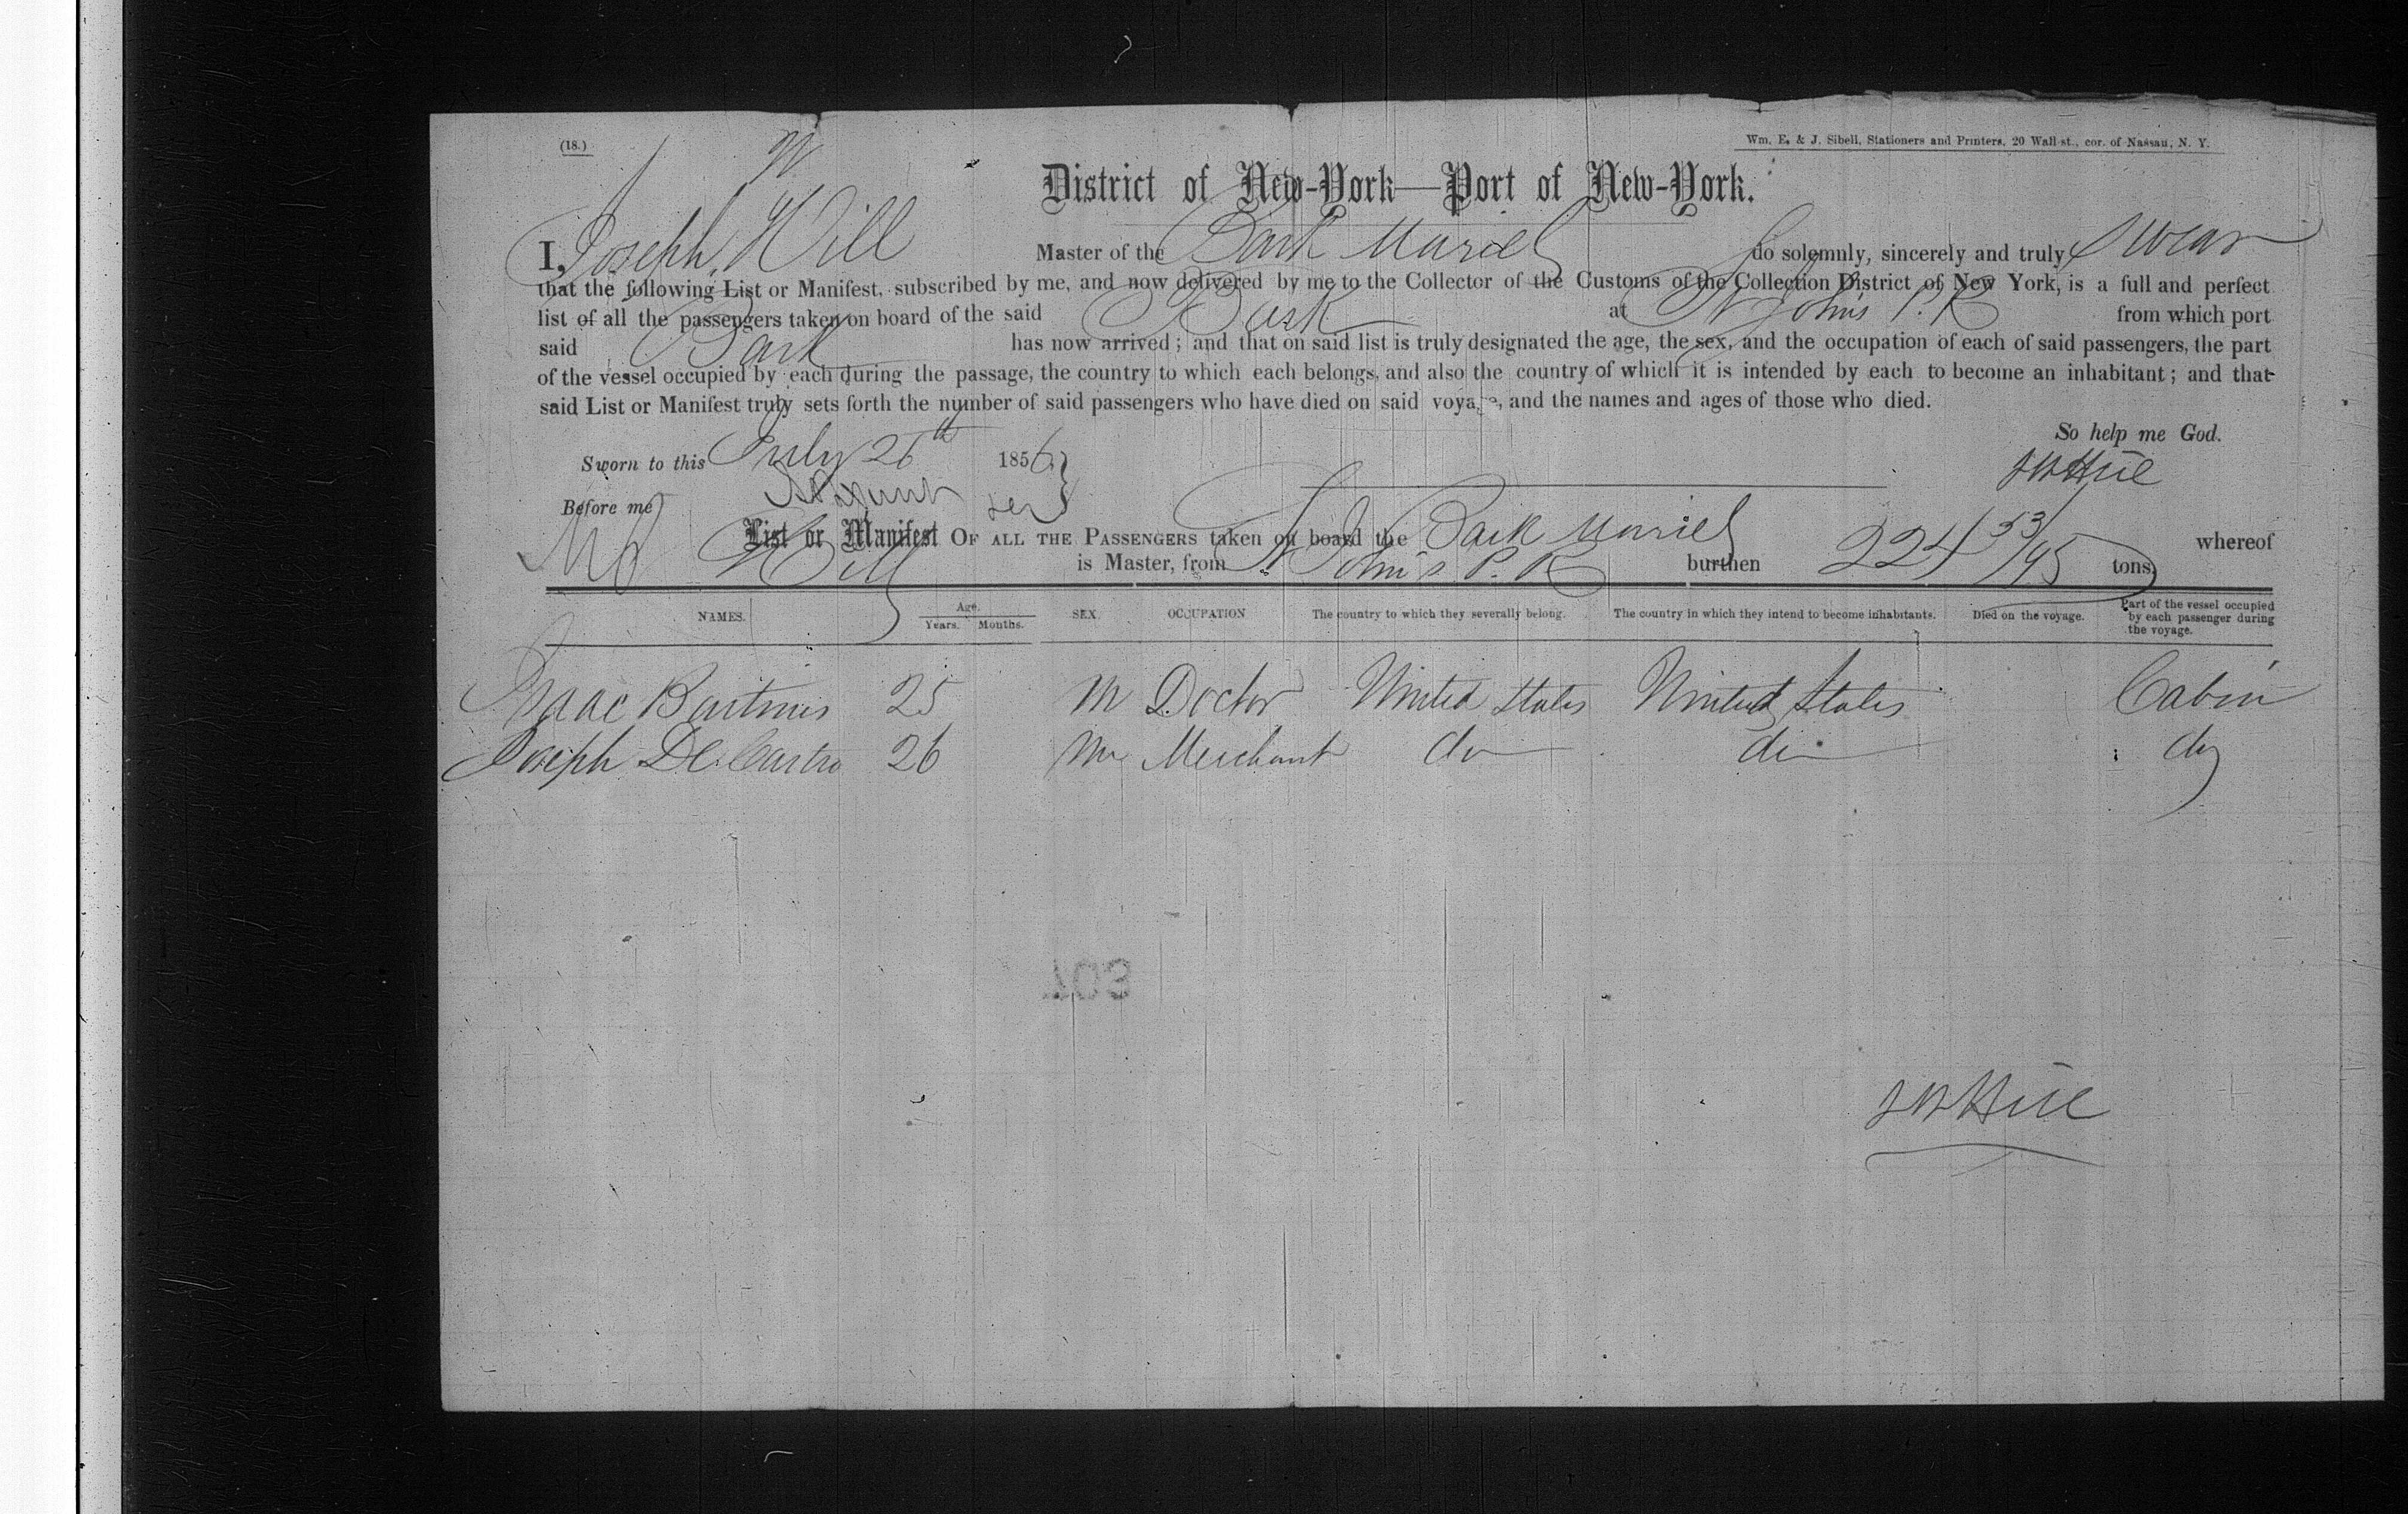 (18.)
Wm. E. & J. Sibell, Stationers and Printers, 20 Wall-st., cor. of Nassau, N. Y.
W
District of New-York—Port of New-York.
I, Joseph Hill Master of the Bark Muriel do solemnly, sincerely and truly swear
that the following List or Manifest, subscribed by me, and now delivered by me to the Collector of the Customs of the Collection District of New York, is a full and perfect
list of all the passengers taken on board of the said Bark at St John's P. R from which port
said Bark has now arrived; and that on said list is truly designated the age, the sex, and the occupation of each of said passengers, the part
of the vessel occupied by each during the passage, the country to which each belongs, and also the country of which it is intended by each to become an inhabitant; and that
said List or Manifest truly sets forth the number of said passengers who have died on said voyage, and the names and ages of those who died.
So help me God.
Sworn to this July 26th 1856
J W Hill
Before me
List or Manifest OF ALL THE PASSENGERS taken on board the Bark Muriel whereof
Hill is Master, from St John's P. R burthen 224 53/95 tons.
NAMES. Age. Years. Months. SEX. OCCUPATION The country to which they severally belong. The country in which they intend to become inhabitants. Died on the voyage. Part of the vessel occupied by each passenger during the voyage.
Isaac 25 M Doctor United States United States Cabin
Joseph De Castro 26 M Merchant do do do
J W Hill